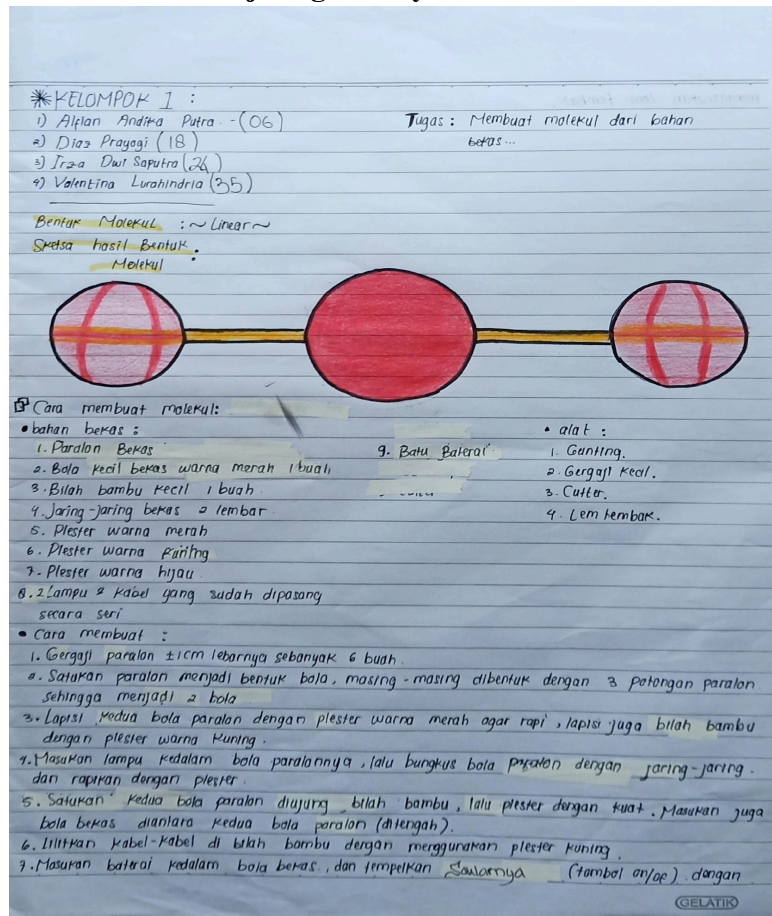 *KELOMPOK 1 :
1) Alfian Andika Putra - (06)
2) Diaz Prayogi (18)
3) Irza Dwi Saputra (24)
4) Valentina Lurahindria (35)
Tugas : Membuat molekul dari bahan
bekas...
Bentuk Molekul : ~ Linear ~
Sketsa hasil Bentuk
Molekul :
Cara membuat molekul:
• bahan bekas :
1. Paralon Bekas
2. Bola kecil bekas warna merah 1 buah
3. Bilah bambu kecil 1 buah
4. Jaring-jaring bekas 2 lembar
5. Plester warna merah
6. Plester warna kuning
7. Plester warna hijau
8. 2 Lampu 2 kabel yang sudah dipasang
secara seri
9. Batu Baterai
• alat :
1. Gunting.
2. Gergaji kecil.
3. Cutter.
4. Lem tembak.
• Cara membuat :
1. Gergaji paralon ±1cm lebarnya sebanyak 6 buah.
2. Satukan paralon menjadi bentuk bola, masing-masing dibentuk dengan 3 potongan paralon
sehingga menjadi 2 bola
3. Lapisi kedua bola paralon dengan plester warna merah agar rapi, lapisi juga bilah bambu
dengan plester warna kuning.
4. Masukan lampu kedalam bola paralonnya, lalu bungkus bola paralon dengan jaring-jaring.
dan rapikan dengan plester.
5. Satukan kedua bola paralon diujung bilah bambu, lalu plester dengan kuat. Masukan juga
bola bekas diantara kedua bola paralon (ditengah).
6. Lilitkan kabel-kabel di bilah bambu dengan menggunakan plester kuning.
7. Masukan baterai kedalam bola bekas, dan tempelkan Saklarnya (tombol on/of) dengan
GELATIK